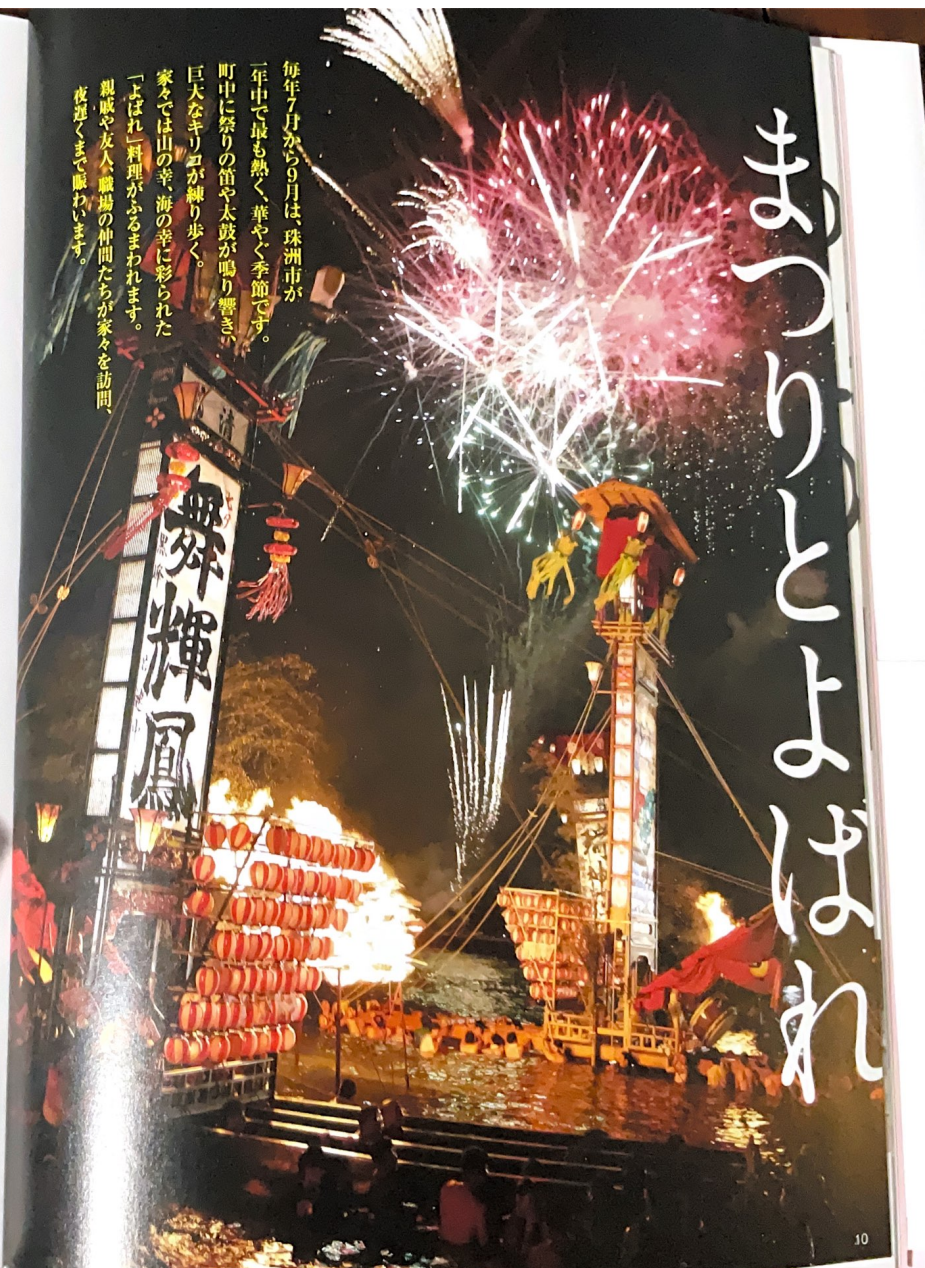 まつりとよばれ
毎年7月から9月は、珠洲市が
一年中で最も熱く、華やぐ季節です。
町中に祭りの笛や太鼓が鳴り響き、
巨大なキリコが練り歩く。
家々では山の幸、海の幸に彩られた
「よばれ」料理がふるまわれます。
親戚や友人、職場の仲間たちが家々を訪問、
夜遅くまで賑わいます。
舞輝鳳
10